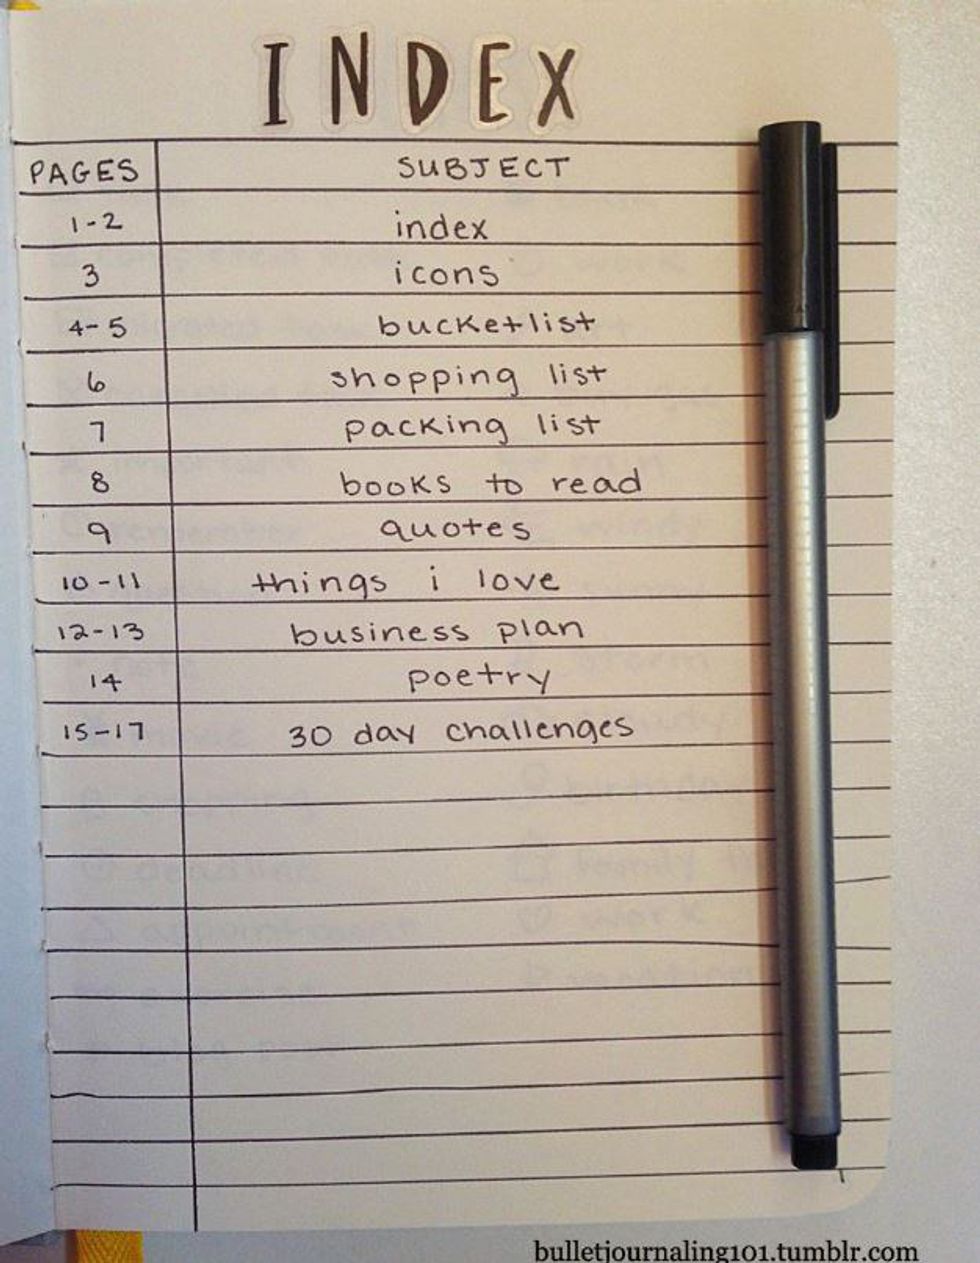 INDEX
PAGES SUBJECT
1-2 index
3 icons
4-5 bucketlist
6 shopping list
7 packing list
8 books to read
9 quotes
10-11 things i love
12-13 business plan
14 poetry
15-17 30 day challenges
bulletjournaling101.tumblr.com